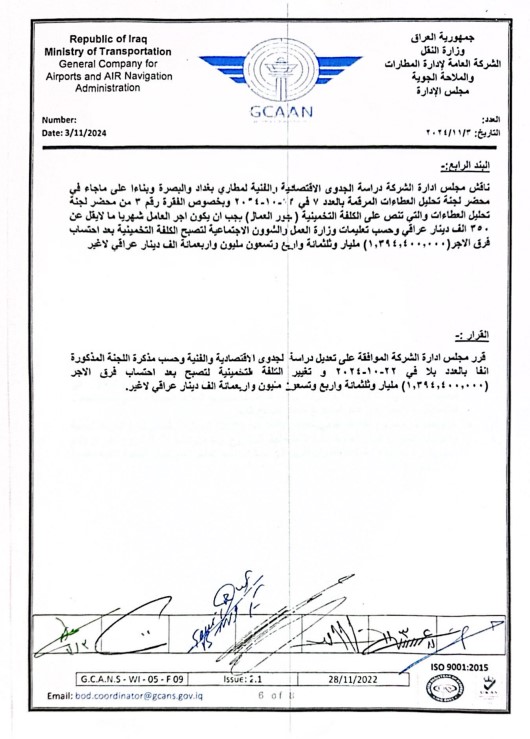 Republic of Iraq
Ministry of Transportation
General Company for
Airports and AIR Navigation
Administration
جمهورية العراق
وزارة النقل
الشركة العامة لإدارة المطارات
والملاحة الجوية
مجلس الإدارة
GCAAN
Number:
Date: 3/11/2024
العدد:
التاريخ: ٢٠٢٤/١١/٣
البند الرابع:-
ناقش مجلس ادارة الشركة دراسة الجدوى الاقتصادية والفنية لمطاري بغداد والبصرة وبناءا على ماجاء في
محضر لجنة تحليل العطاءات المرقمة بالعدد ٧ في ١٠-٢٠٢٤ وبخصوص الفقرة رقم ٣ من محضر لجنة
تحليل العطاءات والتي تنص على الكلفة التخمينية (جور العمال) يجب ان يكون اجر العامل شهريا ما لايقل عن
٣٥٠ الف دينار عراقي وحسب تعليمات وزارة العمل والشوون الاجتماعية لتصبح الكلفة التخمينية بعد احتساب
فرق الاجر (١,٣٩٤,٤٠٠,٠٠٠) مليار وثلثمانة واربع وتسعون مليون واربعمانة الف دينار عراقي لاغير
القرار :-
قرر مجلس ادارة الشركة الموافقة على تعديل دراسة لجدوى الاقتصادية والفنية وحسب مذكرة اللجنة المذكورة
انفا بالعدد بلا في ٢٢-١٠-٢٠٢٤ و تغيير الكلفة التخمينية لتصبح بعد احتساب فرق الاجر
(١,٣٩٤,٤٠٠,٠٠٠) مليار وثلثمانة واربع وتسعون مليون واربعمانة الف دينار عراقي لاغير.
G.C.A.N.S - WI - 05 - F 09
Issue: 2.1
28/11/2022
ISO 9001:2015
Email: bod.coordinator@gcans.gov.iq
6 of 8